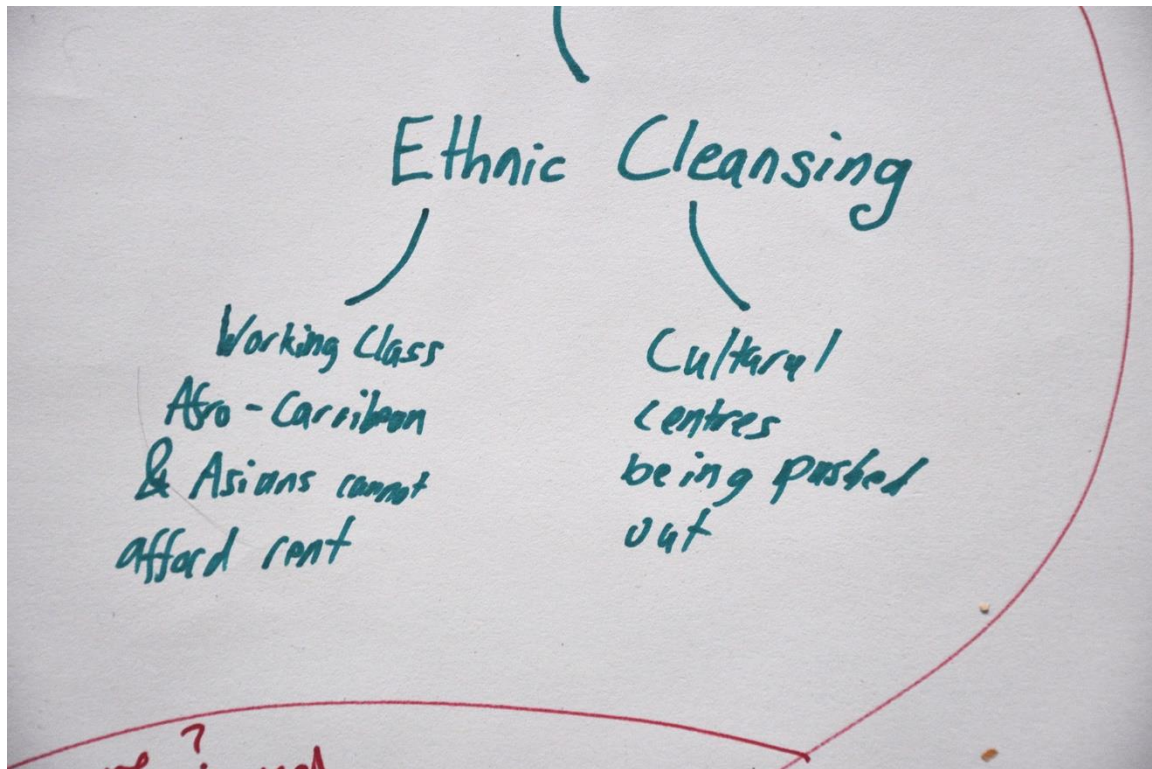 Ethnic Cleansing
Working Class
Afro-Carribean
& Asians cannot
afford rent
Cultural
centres
being pushed
out
?